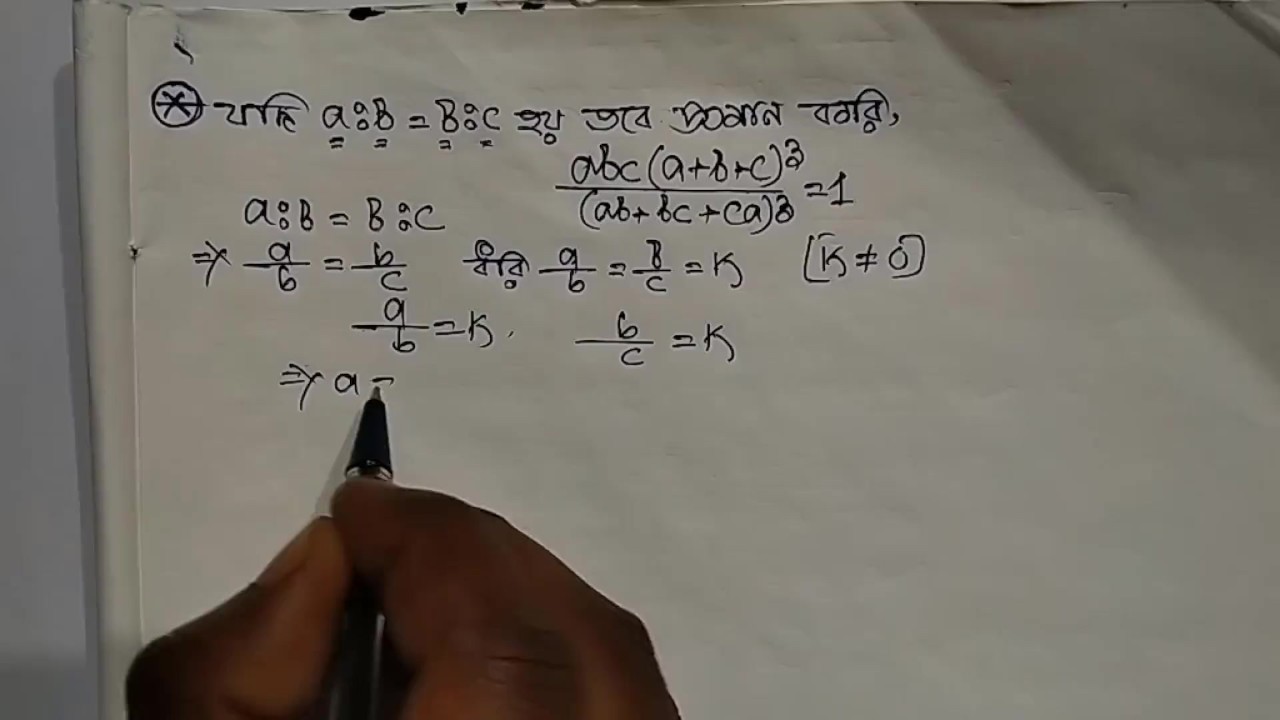 ⊛ যদি a:b = b:c হয় তবে প্রমান করি,
abc(a+b+c)³/(ab+bc+ca)³ = 1
a:b = b:c
⇒ a/b = b/c ধরি a/b = b/c = K [K ≠ 0]
a/b = K. b/c = K
⇒ a =